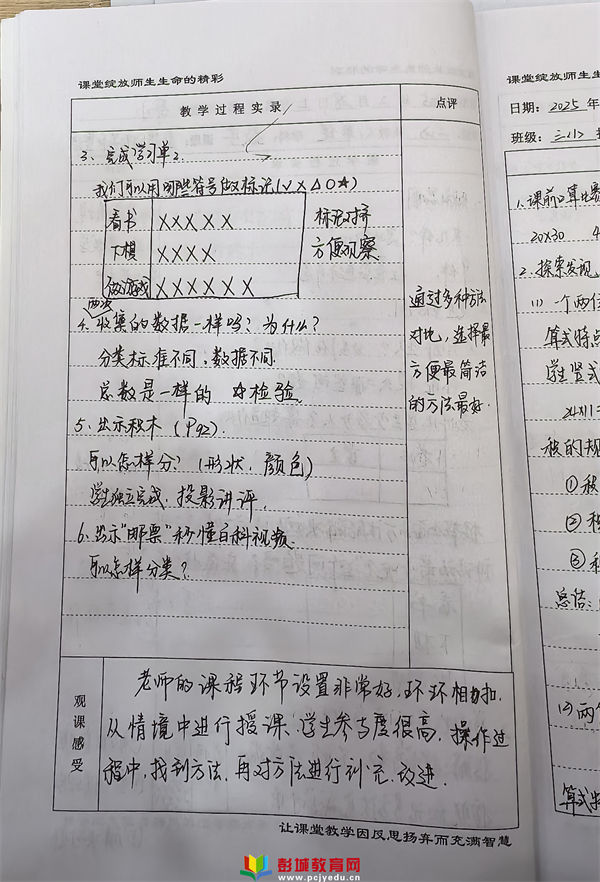 课堂绽放师生生命的精彩
教学过程实录
点评
3、完成学习单2.
我们可以用哪些符号做标记(√ × △ ○ ☆)
看书 ×××××
下棋 ××××
做游戏 ××××××
标记对齐
方便观察
两次
4、收集的数据一样吗?为什么?
分类标准不同,数据不同
总数是一样的 ☆检验
5、出示积木(P92).
可以怎样分?(形状、颜色)
学生独立完成,投影讲评.
6、出示“邮票”秒懂百科视频
可以怎样分类?
通过多种方法
对比,选择最
方便最简洁
的方法最好.
观课感受
老师的课程环节设置非常好,环环相扣.
从情境中进行授课、学生参与度很高,操作过
程中,找到方法,再对方法进行补充、改进.
让课堂教学因反思扬弃而充满智慧
课堂绽放师生生
日期:2025年
班级:三(1)
1.课前口算比赛
20×30
2、探索发现
(1) 一个两位
算式特点
学生竖式
24×11
积的规
①积
②积
③积
总结:
(2)两个
算式
彭城教育网
www.pcjyedu.cn